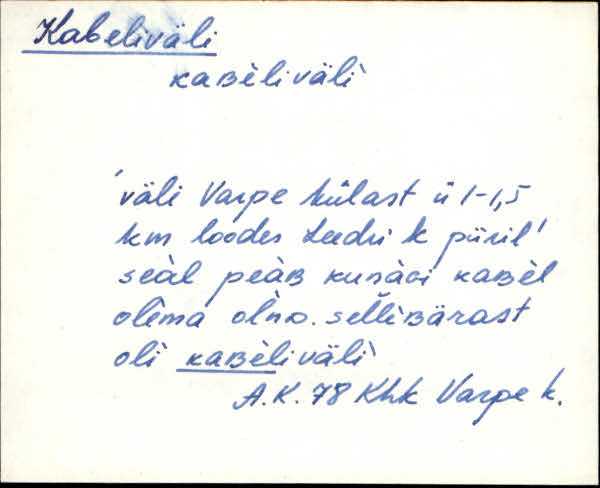 Kabeliväli
kaʙèliväli̇̀
'väli Varpe külast ü 1-1,5
km loodes Leedri k piiril'
seàl peàʙ kunàɢi kaʙèl
olèma olǹD. selliʙärast
oli kaʙèliväli̇̀
A.K. 78 Khk Varpe k.